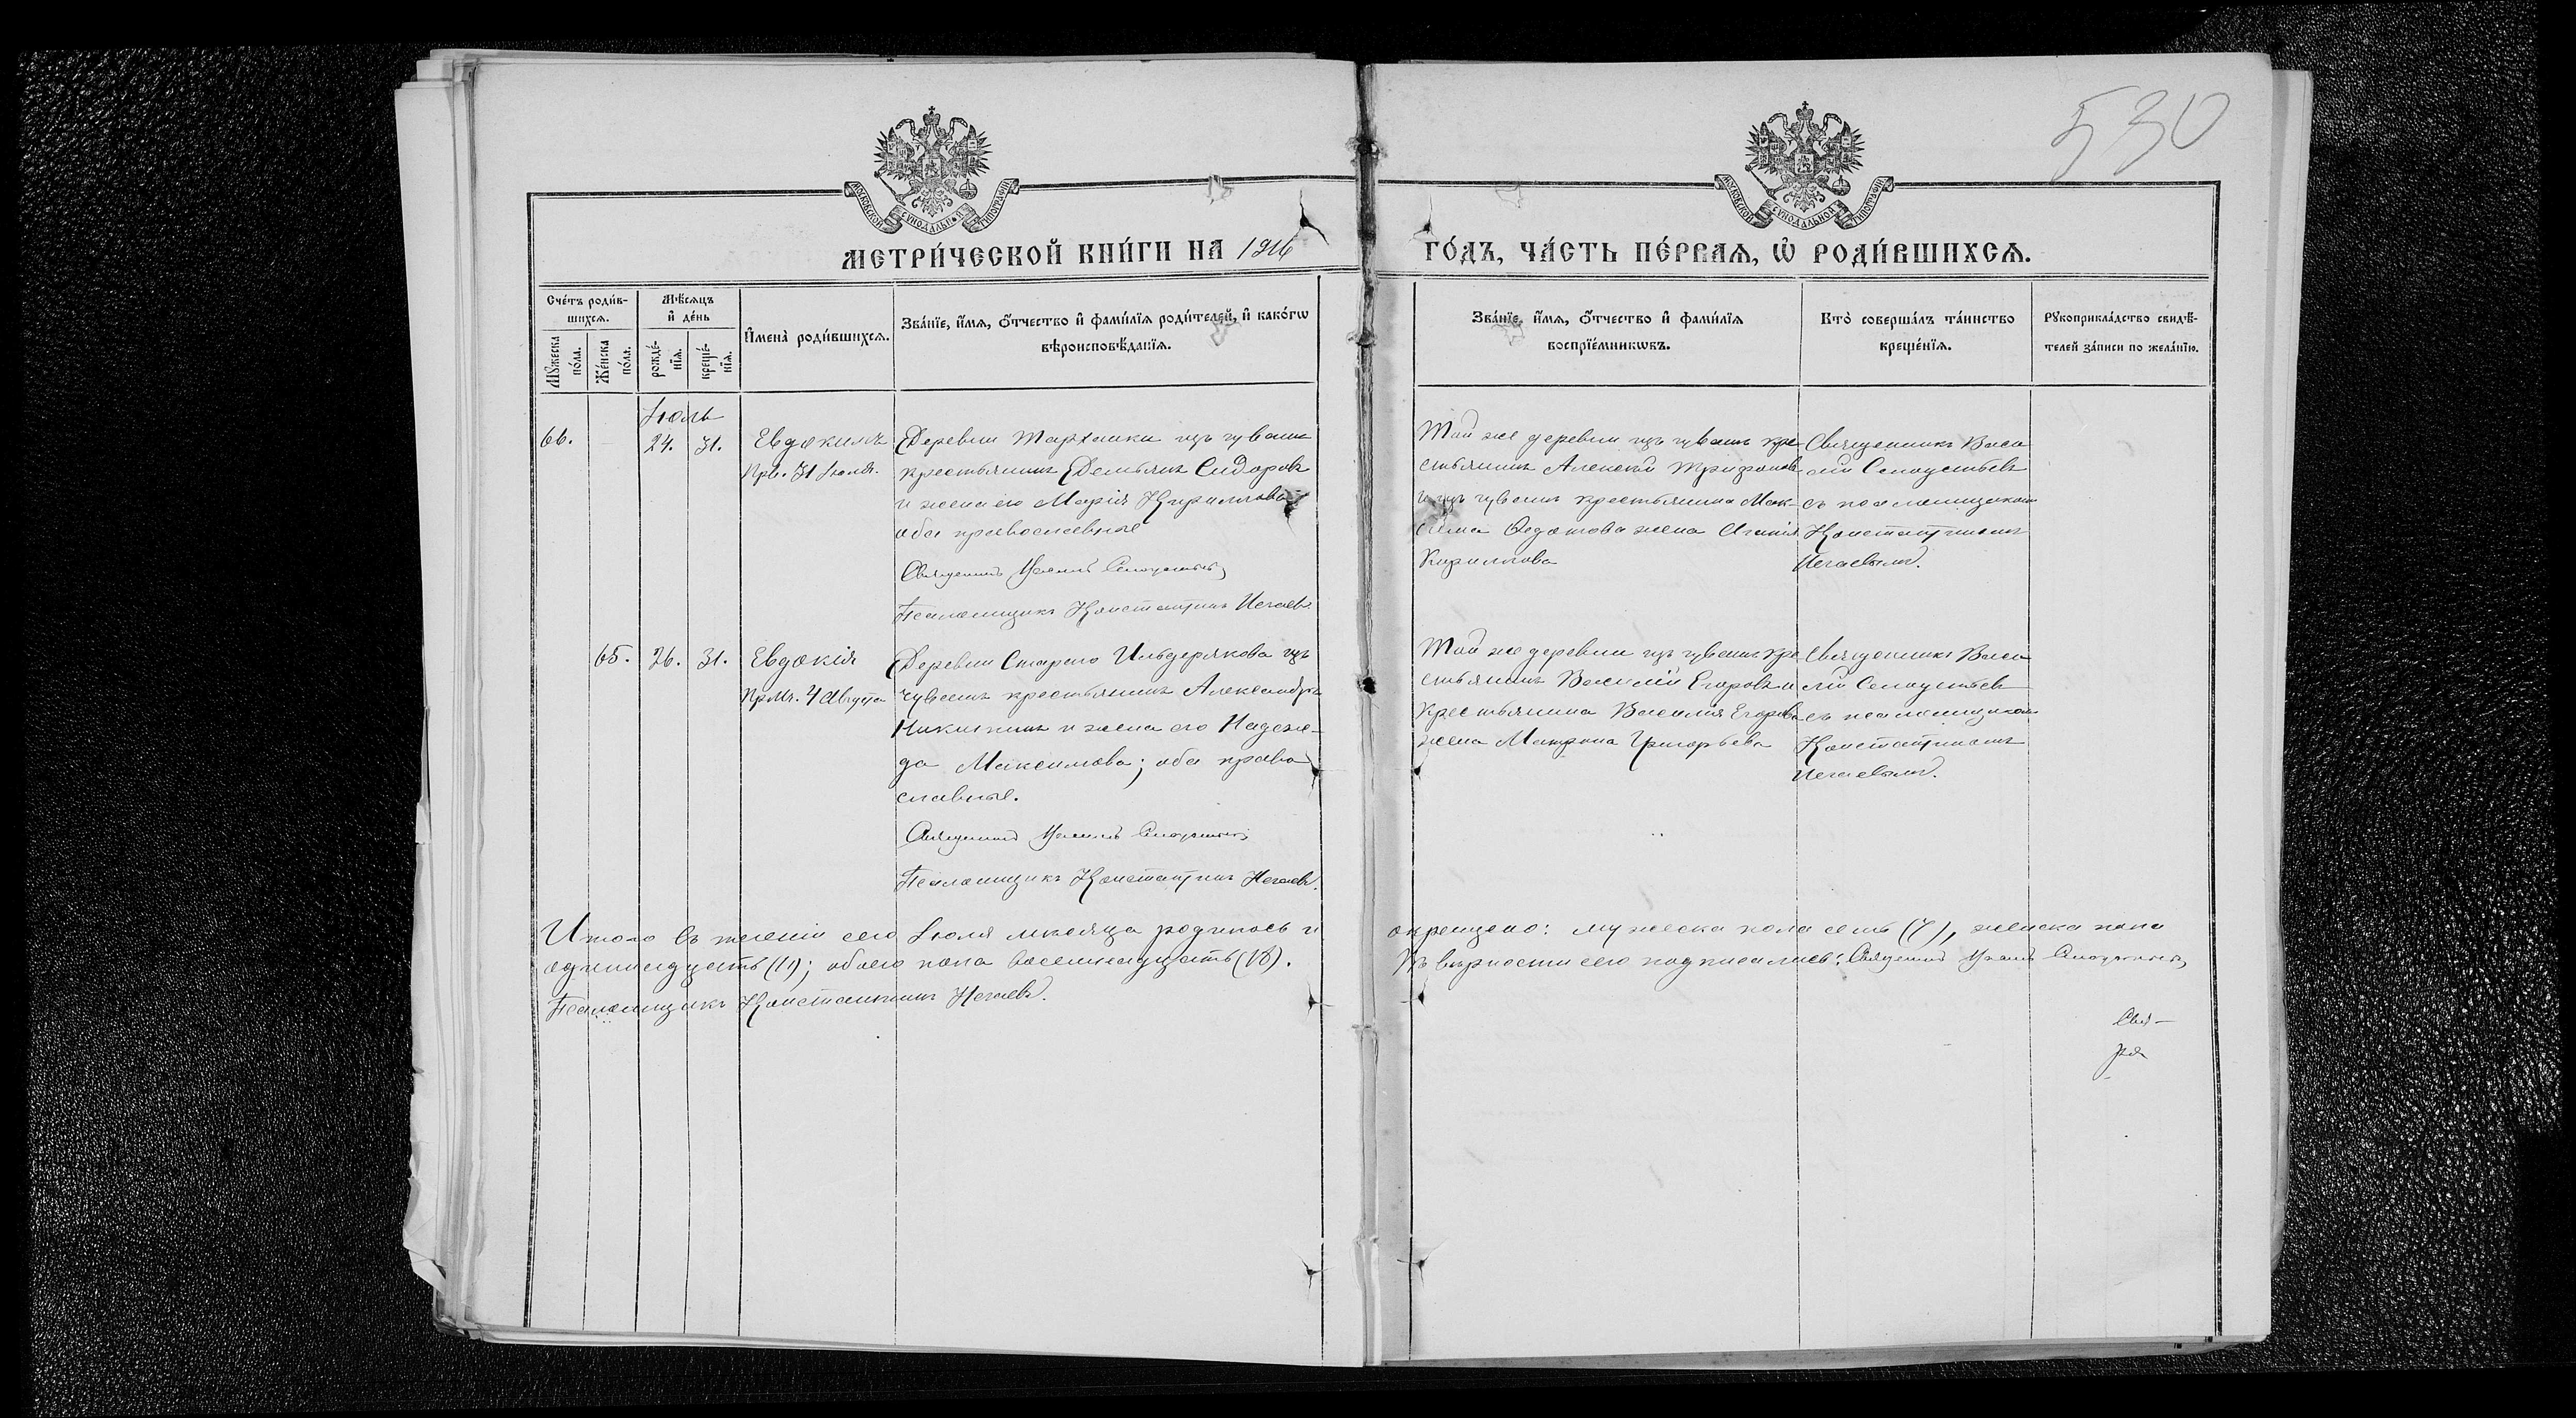 530
МОСКОВСКОЙ СУНОДАЛЬНОЙ ТИПОГРАФІИ
МОСКОВСКОЙ СУНОДАЛЬНОЙ ТИПОГРАФІИ
МЕТРИ́ЧЕСКОЙ КНИ́ГИ НА 1916
ГО́ДЪ, ЧА́СТЬ ПЕ́РВАѦ, Ѽ РОДИ́ВШИХСѦ.
Сче́тъ роди́в-
шихсѧ.
Мꙋ́жеска по́ла.
Же́нска по́ла.
Мѣ́сѧцъ
и҆ де́нь
рожде́-нїѧ.
креще́-нїѧ.
И҆мена̀ роди́вшихсѧ.
Зва́нїе, и҆́мѧ, ѻ҆́тчество и҆ фами́лїѧ роди́телей, и҆ како́гѡ
вѣроисповѣ́данїѧ.
Зва́нїе, и҆́мѧ, ѻ҆́тчество и҆ фами́лїѧ
воспрїе́мникѡвъ.
Кто̀ соверша́лъ та́инство
креще́нїѧ.
Рꙋкоприкла́дство свидѣ́-
телей за́писи по жела́нїю.
Іюль
66. 24. 31.
Евдокимъ
Прв. 31 Іюля.
Деревни Тарханки изъ чувашъ
крестьянинъ Демьянъ Сидоровъ
и жена его Марія Кириллова
оба православные
Священникъ
Псаломщикъ Константинъ Нечаевъ.
Той же деревни изъ чувашъ кре
стьянинъ Алексѣй Трифоновъ
и изъ чувашъ крестьянина Мак-
сима Ѳедотова жена
Кириллова
Священникъ Васи
лій
съ псаломщикомъ
Константиномъ
Нечаевымъ.
65. 26. 31.
Евдокія
Прмч. 4 Августа
Деревни Стараго Ильдерякова изъ
чувашъ крестьянинъ Александръ
Никитинъ и жена его Надеж-
да Максимова; оба право
славные.
Священникъ
Псаломщикъ Константинъ Нечаевъ.
Той же деревни изъ чувашъ кре
стьянинъ Василій Егоровъ и
крестьянина Василія Егорова
жена Матрона Григорьева
Священникъ Васи
лій
съ псаломщикомъ
Константиномъ
Нечаевымъ.
Итого въ теченіи сего Іюля мѣсяца родилось и окрещено: мужеска пола семь (7), женска пола
одиннадцать (11); обоего пола восемнадцать (18). Въ вѣрности сего подписались: Священникъ
Псаломщикъ Константинъ Нечаевъ.
Свя-